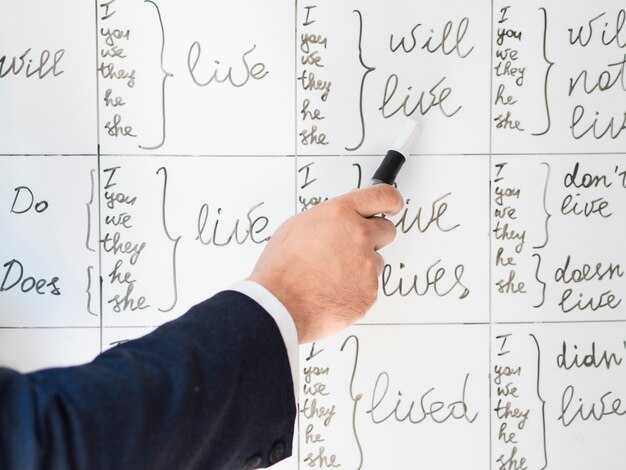 Will
I
you
we
they
he
she
live
I
you
we
they
he
she
will
live
I
you
we
they
he
she
will
not
live
Do
Does
I
you
we
they
he
she
live
I
live
lives
I
you
we
they
he
she
don't
live
doesn
live
I
you
we
they
he
she
lived
I
you
we
they
he
she
didn'
live